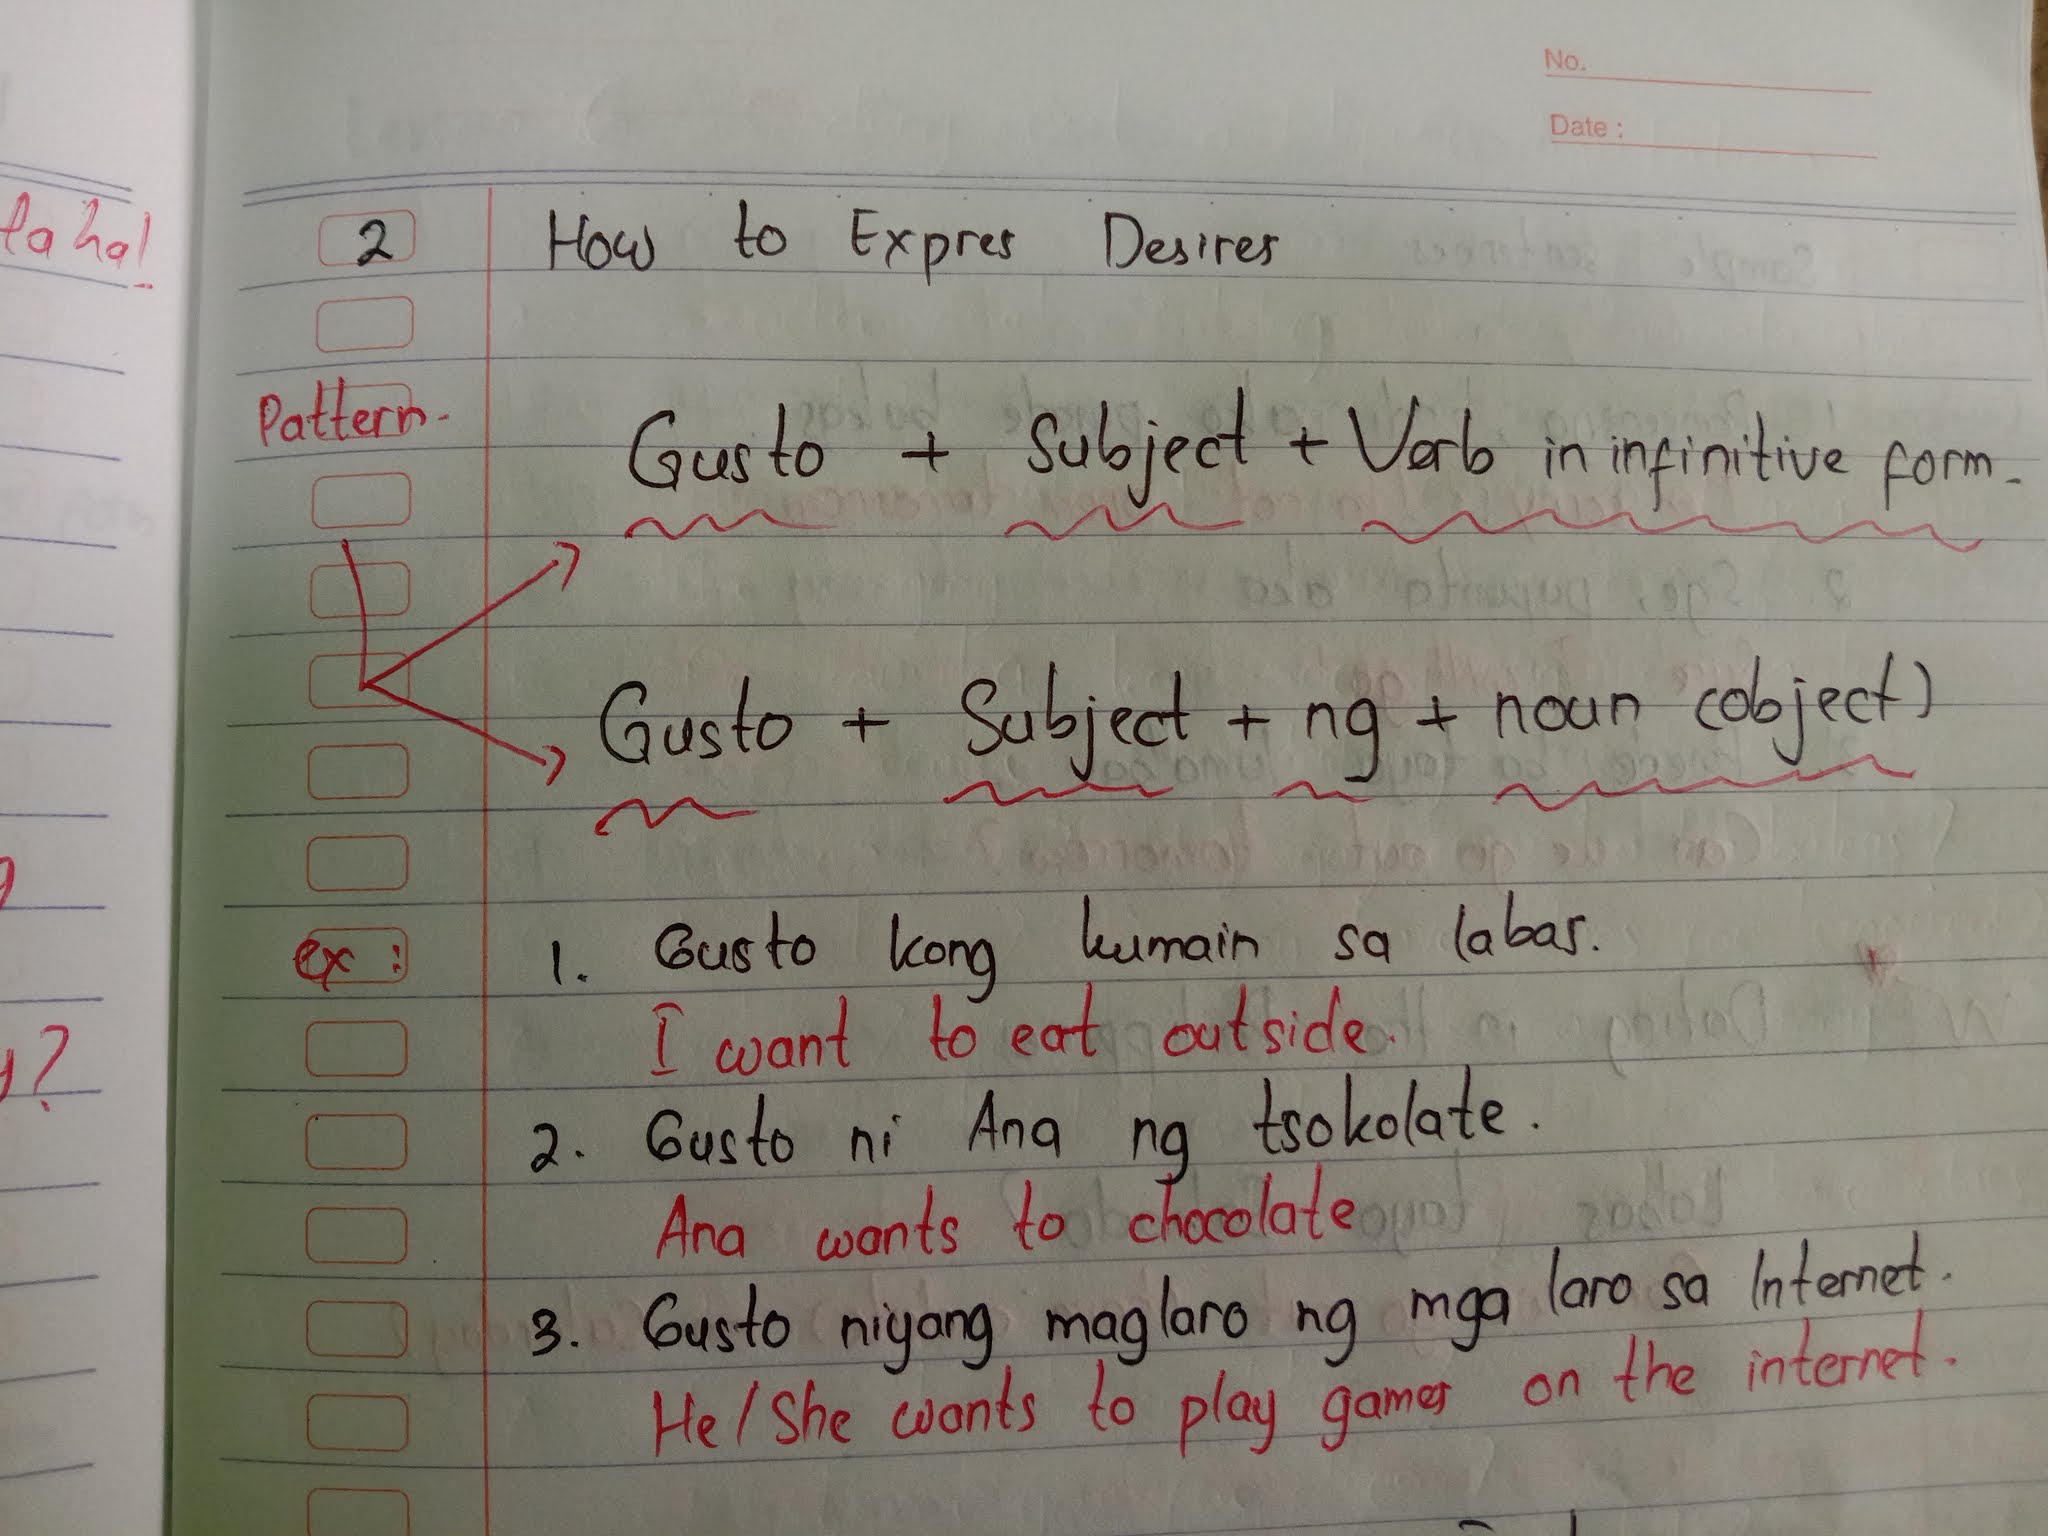 No.
Date :
lahal
2 How to Expres Desires
Pattern.
Gusto + Subject + Verb in infinitive form.
Gusto + Subject + ng + noun (object)
ex: 1. Gusto kong kumain sa labas.
I want to eat outside.
2. Gusto ni Ana ng tsokolate.
Ana wants to chocolate
3. Gusto niyang maglaro ng mga laro sa Internet.
He/She wants to play games on the internet.